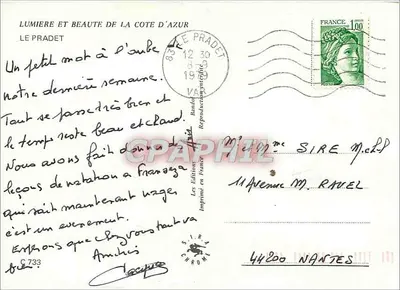 LUMIERE ET BEAUTE DE LA COTE D'AZUR
LE PRADET
Un petit mot à l'aube de
notre dernière semaine.
Tout se passe très bien et
le temps reste beau et chaud.
Nous avons fait donner des
leçons de natation a
qui sait maintenant nager
c'est un evenement.
Esperons que chez vous tout va
bien. Amitiés
Jacques
C 733
83 LE PRADET
12 30
1979
VAR
FRANCE
1,00
Les Editions
Imprimé en France
Reproduction interdite
CPARHIL
Mr et Mme SIRE Michel
11 Avenue M. RAVEL
44200 NANTES